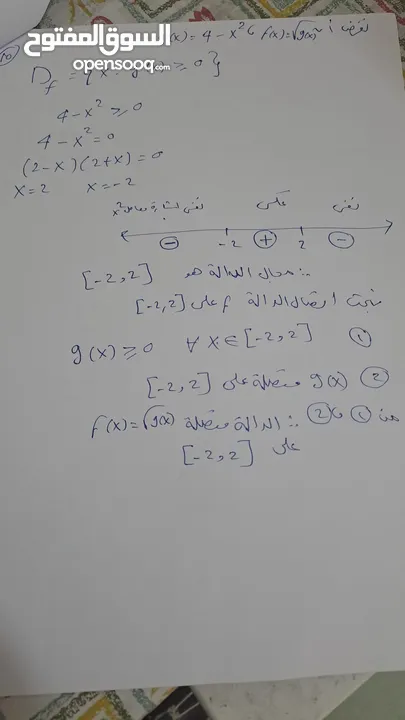 السوق المفتوح
opensooq.com
نفرض أن g(x) = 4 - x² , f(x) = √g(x)
D_f = { x : g(x) ≥ 0 }
4 - x² ≥ 0
4 - x² = 0
(2 - x)(2 + x) = 0
x = 2 x = -2
نفس إشارة معامل x² عكس نفس
⊖ -2 ⊕ 2 ⊖
∴ مجال الدالة هو [-2, 2]
نثبت اتصال الدالة f على [-2, 2]
① g(x) ≥ 0 ∀ x ∈ [-2, 2]
② g(x) متصلة على [-2, 2]
من ① و ② ∴ الدالة متصلة f(x) = √g(x)
على [-2, 2]